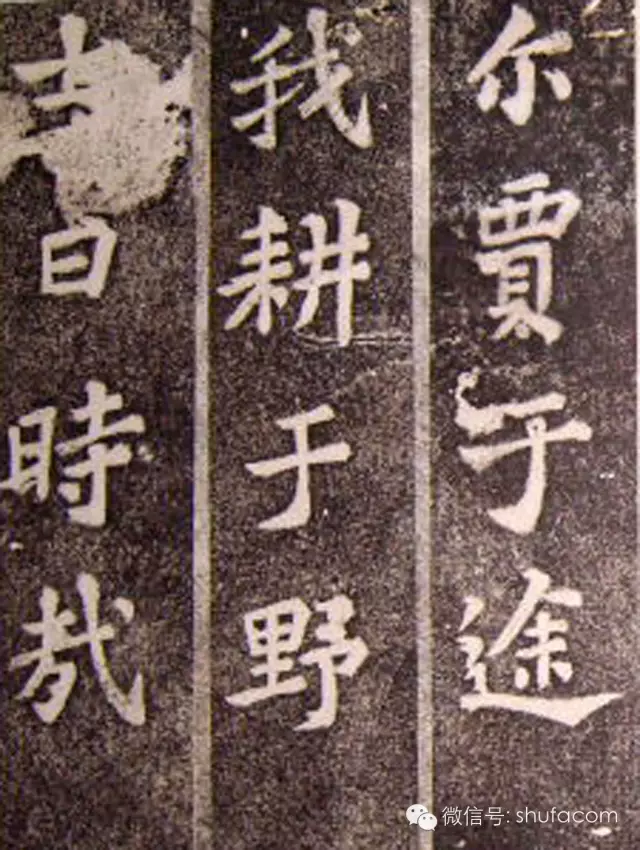 尓賈于途
我耕于野
士曰時哉
微信号: shufacom